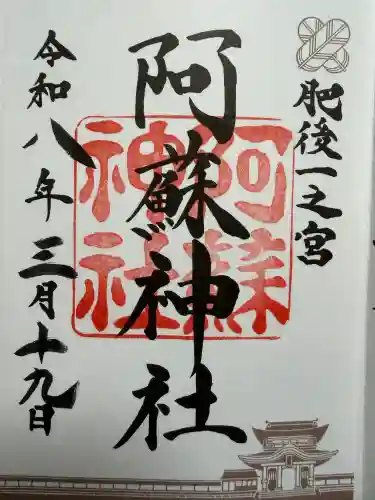 肥後一之宮
阿蘇神社
阿蘇神社
令和八年三月十九日